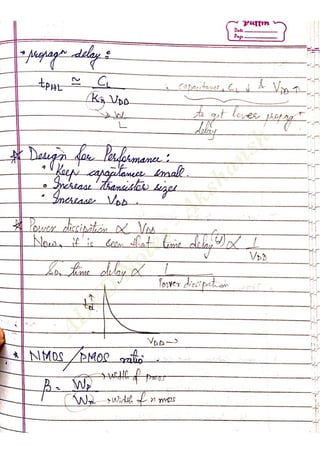 Date
Page
→ propagn delay :
tPHL ≃ CL / Kn VDD
W
L
• capacitance, CL ↓ & VDD ↑
to get lower propagn
delay
* Design for Performance :
• Keep capacitance small.
• Increase transistor sizes
• Increase VDD.
* Power dissipation ∝ VDD
Now, it is seen that time delay (td) ∝ 1 / VDD
So, time delay ∝ 1 / Power dissipation
td ↑
VDD →
* NMOS / PMOS ratio.
β = Wp / Wn
→ width of pmos
→ width of n mos